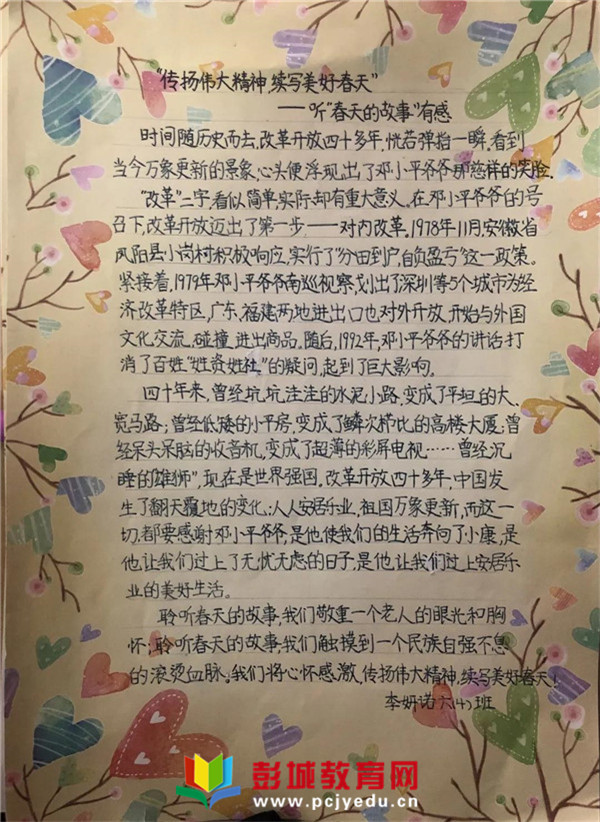 “传扬伟大精神,续写美好春天”
——听“春天的故事”有感
时间随历史而去,改革开放四十多年,恍若弹指一瞬,看到
当今万象更新的景象,心头便浮现出了邓小平爷爷那慈祥的笑脸.
“改革”二字,看似简单,实际却有重大意义。在邓小平爷爷的号
召下,改革开放迈出了第一步——对内改革,1978年11月安徽省
凤阳县小岗村积极响应,实行了“分田到户,自负盈亏”这一政策。
紧接着,1979年邓小平爷爷南巡视察,划出了深圳等5个城市为经
济改革特区,广东、福建两地进出口也对外开放,开始与外国
文化交流、碰撞、进出商品。随后,1992年,邓小平爷爷的讲话打
消了百姓“姓资姓社”的疑问,起到了巨大影响。
四十年来,曾经坑坑洼洼的水泥小路,变成了平坦的大
宽马路;曾经低矮的小平房,变成了鳞次栉比的高楼大厦;曾
经呆头呆脑的收音机,变成了超薄的彩屏电视……曾经沉
睡的“雄狮”,现在是世界强国。改革开放四十多年,中国发
生了翻天覆地的变化:人人安居乐业,祖国万象更新,而这一
切,都要感谢邓小平爷爷,是他使我们的生活奔向了小康,是
他让我们过上了无忧无虑的日子,是他让我们过上安居乐
业的美好生活。
聆听春天的故事,我们敬重一个老人的眼光和胸
怀;聆听春天的故事,我们触摸到一个民族自强不息
的滚烫血脉。我们将心怀感激,传扬伟大精神,续写美好春天!
李妍诺六(4)班
彭城教育网
www.pcjyedu.cn